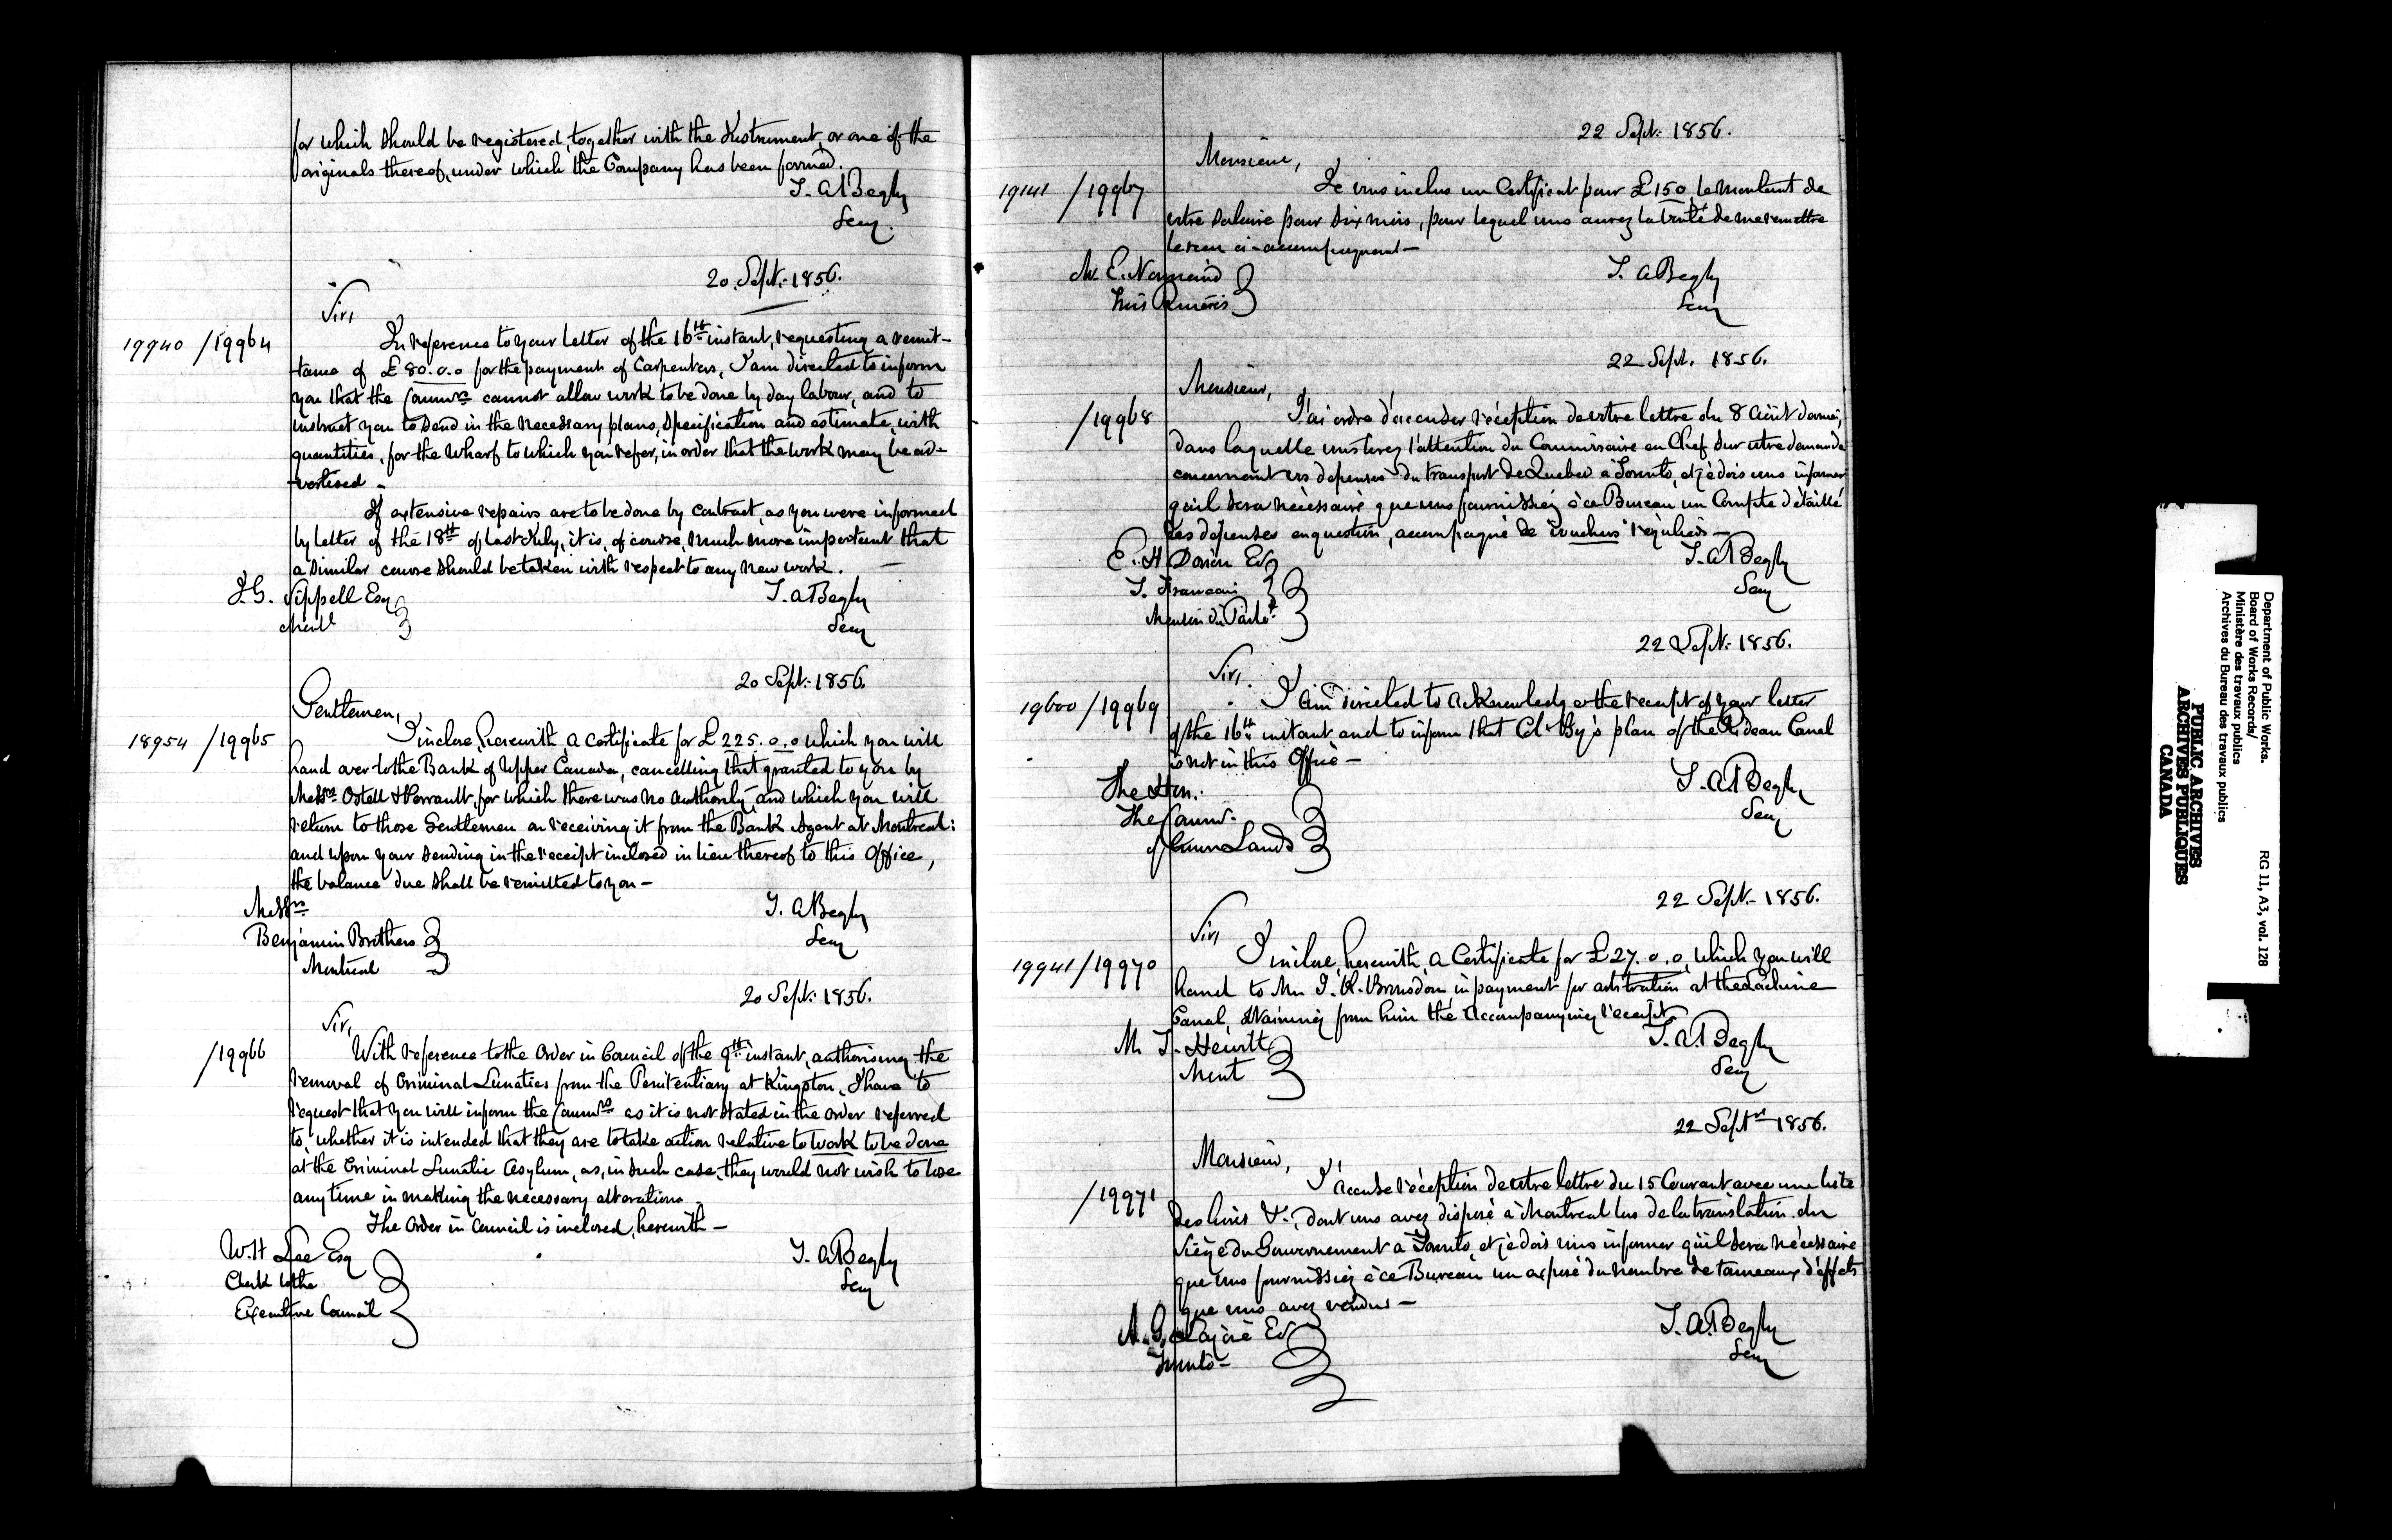 for which should be registered, together with the Instrument, or one of the
originals thereof, under which the Company has been formed.
T. A Begly
Secy.
20 Sept. 1856.
Sir,
19940 / 19964
In reference to your letter of the 16th instant, requesting a remit-
tance of £80.0.0 for the payment of Carpenters, I am directed to inform
you that the Commrs cannot allow work to be done by day labour, and to
instruct you to send in the necessary plans, specification and estimate, with
quantities, for the Wharf to which you refer, in order that the work may be ad-
vertised -
If extensive repairs are to be done by contract, as you were informed
by letter of the 18th of last July, it is, of course, much more important that
a similar course should be taken with respect to any new work. -
J. G. Sippell Esq
Montl
T. A Begly
Secy
20 Sept. 1856.
Gentlemen,
18954 / 19965
I inclose, herewith, a certificate for £225.0.0 which you will
hand over to the Bank of Upper Canada, cancelling that granted to you by
Messrs Ostell & Perrault, for which there was no authority, and which you will
return to those Gentlemen on receiving it from the Bank Agent at Montreal:
and upon your sending in the receipt inclosed in lieu thereof to this Office,
the balance due shall be remitted to you -
Messrs
Benjamin Brothers
Montreal
T. A Begly
Secy
20 Sept. 1856.
Sir,
/ 19966
With reference to the Order in Council of the 9th instant, authorising the
removal of Criminal Lunatics from the Penitentiary at Kingston, I have to
request that you will inform the Commrs as it is not stated in the order referred
to, whether it is intended that they are to take action relative to work to be done
at the Criminal Lunatic Asylum, as, in such case, they would not wish to lose
any time in making the necessary alterations.
The Order in Council is inclosed, herewith -
W. H Lee Esq
Clerk to the
Executive Council
T. A Begly
Secy
22 Sept. 1856.
Monsieur,
19141 / 19967
Je vous inclus un Certificat pour £150, le montant de
votre salaire pour six mois, pour lequel vous aurez la bonté de me remettre
le reçu ci-accompagnant -
M. E. Normand
Trois Rivières
T. A Begly
Secy
22 Sept. 1856.
Monsieur,
/ 19968
J'ai ordre d'accuser réception de votre lettre du 8 Août dernier,
dans laquelle vous tirez l'attention du Commissaire en Chef sur votre demande
concernant vos depenses du transport de Quebec à Toronto, et je dois vous informer
qu'il sera nécessaire que vous fournissiez à ce Bureau un Compte détaillé
des dépenses en question, accompagné de vouchers réguliers -
E. H Dorion Esq
T. Francais
Maison du Parlt
T. A Begly
Secy
22 Sept. 1856.
Sir,
19600 / 19969
I am directed to acknowledge the receipt of your letter
of the 16th instant and to inform that Col. By's plan of the Rideau Canal
is not in this Office -
The Hon.
The Commr.
of Crown Lands
T. A Begly
Secy
22 Sept. 1856.
Sir,
19941 / 19970
I inclose, herewith, a Certificate for £27.0.0, which you will
hand to Mr J. R. Bronsdon in payment for arbitration at the Lachine
Canal, obtaining from him the accompanying receipt.
M J. Hewitt
Mont
T. A Begly
Secy
22 Septr 1856.
Monsieur,
/ 19971
J'accuse réception de votre lettre du 15 Courant avec une liste
des livres &c, dont vous avez disposé à Montreal lors de la translation du
Siège du Gouvernement a Toronto, et je dois vous informer qu'il sera nécessaire
que vous fournissiez à ce Bureau un exposé du nombre de tonneaux d'effets
que vous avez vendus -
A. G. Lajoie Esq
Toronto -
T. A Begly
Secy
Department of Public Works.
Board of Works Records/
Ministère des travaux publics
Archives du Bureau des travaux publics
RG 11, A3, vol. 128
PUBLIC ARCHIVES
ARCHIVES PUBLIQUES
CANADA